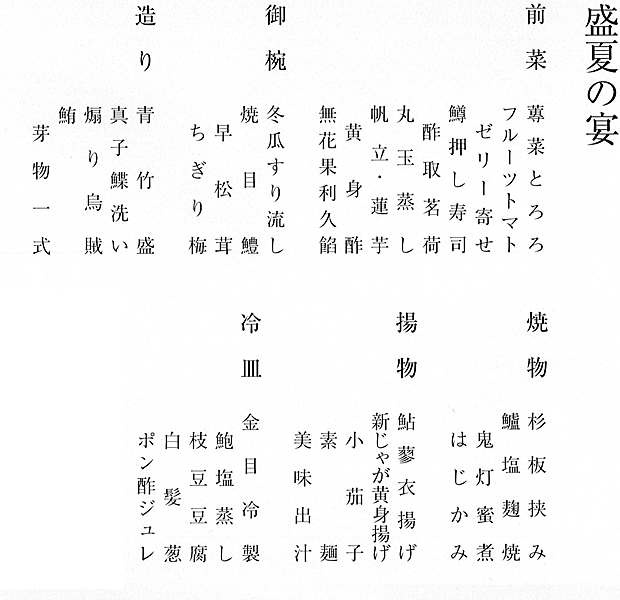 盛夏の宴
前菜
蓴菜とろろ
フルーツトマト
ゼリー寄せ
鱒押し寿司
酢取茗荷
丸玉蒸し
帆立・蓮芋
黄身酢
無花果利久餡
御椀
冬瓜すり流し
焼目鱧
早松茸
ちぎり梅
造り
青竹盛
真子鰈洗い
煽り烏賊
鮪
芽物一式
焼物
杉板挟み
鱸塩麹焼
鬼灯蜜煮
はじかみ
揚物
鮎蓼衣揚げ
新じゃが黄身揚げ
小茄子
素麺
美味出汁
冷皿
金目冷製
鮑塩蒸し
枝豆豆腐
白髪葱
ポン酢ジュレ